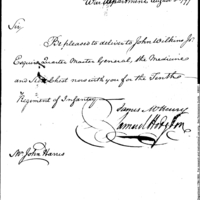 War Department August
Sir
Be pleased to deliver to John Wilkins Jr
Esquire Quarter Master General, the Medicines
and Chest now with you for the Tenth
Regiment of Infantry
James McHenry
Samuel Hodgdon
Mr John Harris